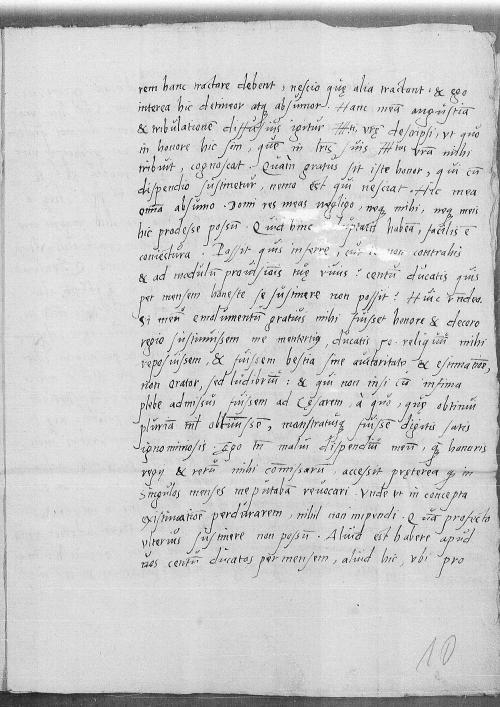 rem hanc tractare debent, nescio quę alia tractant. & ego
interea hic detineor atq absumor. Hanc meā angustiā
& tribulationē diffusius igitur vrę descripsi, vt quo
in honore hic sim, que in suis vrā mihi
tribuit, cognoscat. Quàm gratus sit iste honor, qui cū
dispendio sustinetur, nemo est qui nesciat. Hic mea
omīa absumo. Domi res meas negligo, neq mihi, neq meis
hic prodesse possū. Quid hinc habeā, facilis ē
coniectura. Possit quis inferre, cur te non contrahis
& ad modulū prouisiōis tuę viuis? centū ducatis quis
per mensem honeste se sustinere non possit? Huic vndeo.
Si meū emolumentū gratius mihi fuisset honore & decoro
regio sustinuissem me mentertiū, ducatis 50 reliquū mihi
reposuissem, & fuissem bestia sine autoritate & estimatiōe,
non orator, sed ludibriū: & qui non nisi cū infima
plebe admissus fuissem ad Cęsarem, à quo, quę obtinui
pluria nō obtinuissē, monstratusq fuissē digitis satis
ignominiosis. Ego tn malui dispendiū meū, q honoris
regij & rerū mihi comissarū, accessit pręterea q in
singulos menses me putabā reuocari. Vnde vt in concepta
existimatiōe perdurarem, nihil non inpendi. Quā profecto
vlterius sustinere non possū. Aliud est habere apud
nos centū ducatos per mensem, aliud hic, vbi pro
10